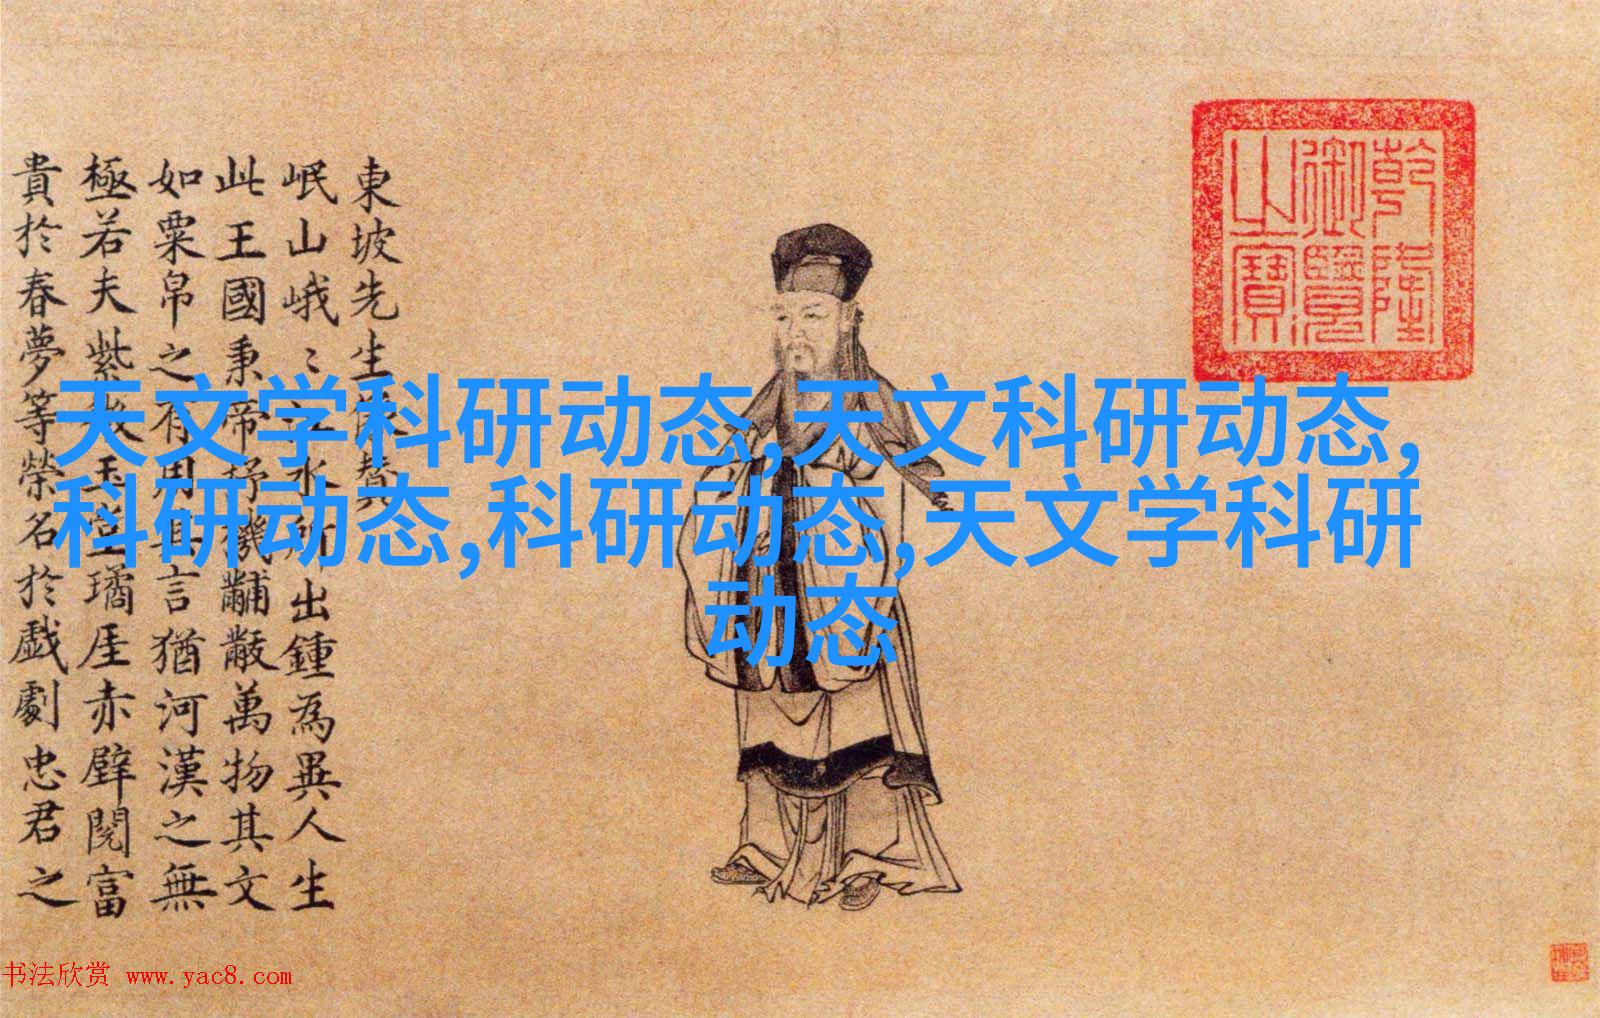 東坡先生像賛
岷山峨〻江水所出鍾為異人生
此王國秉帝杼機黼黻萬物其文
如粟帛之有用其言猶河漢之無
極若夫紫微玉堂璚厓赤壁閲富
貴於春夢等榮名於戲劇忠君之
乾隆
御覽
之寶
天文学科研动态,天文科研动态,
科研动态,科研动态,天文学科研
动态
书法欣赏 www.yac8.com